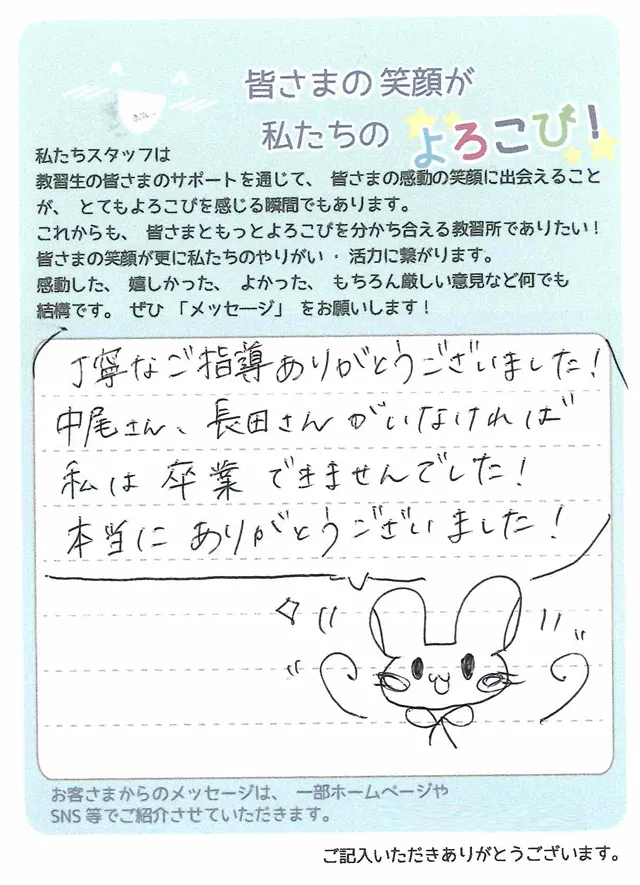 皆さまの笑顔が
私たちの よろこび!
私たちスタッフは
教習生の皆さまのサポートを通じて、皆さまの感動の笑顔に出会えること
が、とてもよろこびを感じる瞬間でもあります。
これからも、皆さまともっとよろこびを分かち合える教習所でありたい!
皆さまの笑顔が更に私たちのやりがい・活力に繋がります。
感動した、嬉しかった、よかった、もちろん厳しい意見など何でも
結構です。ぜひ「メッセージ」をお願いします!
丁寧なご指導ありがとうございました!
中尾さん、長田さんがいなければ
私は卒業できませんでした!
本当にありがとうございました!
お客さまからのメッセージは、一部ホームページや
SNS等でご紹介させていただきます。
ご記入いただきありがとうございます。